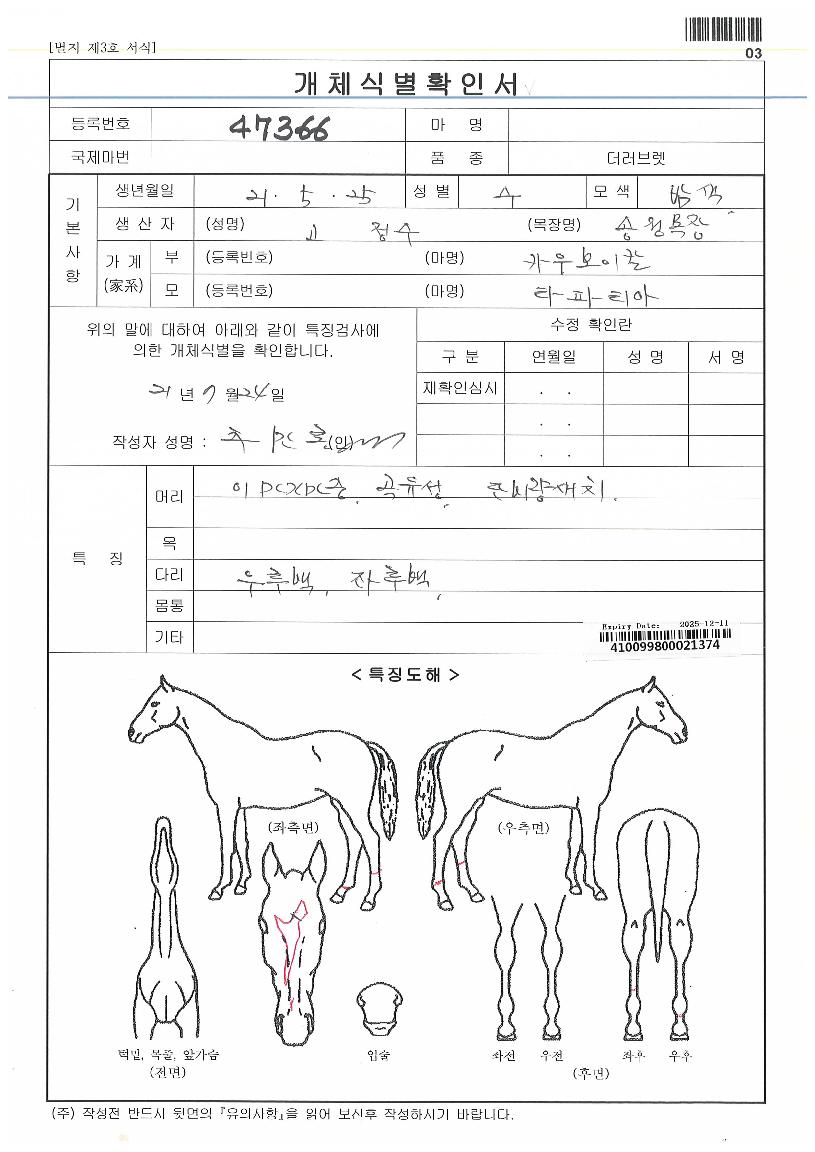 [별지 제3호 서식]
03
개체식별확인서
등록번호 47366 마 명
국제마번 품 종 더러브렛
기본사항
생년월일 21. 5. 25 성 별 수 모 색 밤색
생 산 자 (성명) 고 정수 (목장명) 송원목장
가 계 (家系)
부 (등록번호) (마명) 카우보이칼
모 (등록번호) (마명) 타파티아
위의 말에 대하여 아래와 같이 특징검사에
의한 개체식별을 확인합니다.
21 년 7 월 24 일
작성자 성명 : (인)
수정 확인란
구 분 연월일 성 명 서 명
재확인심시 . .
. .
. .
특 징
머리 곡유성
목
다리 우후백, 좌후백
몸통
기타
Expiry Date: 2025-12-11
410099800021374
< 특징도해 >
(좌측면) (우측면)
턱밑, 목줄, 앞가슴 입술 좌전 우전 좌후 우후
(전면) (후면)
(주) 작성전 반드시 뒷면의 『유의사항』을 읽어 보신후 작성하시기 바랍니다.